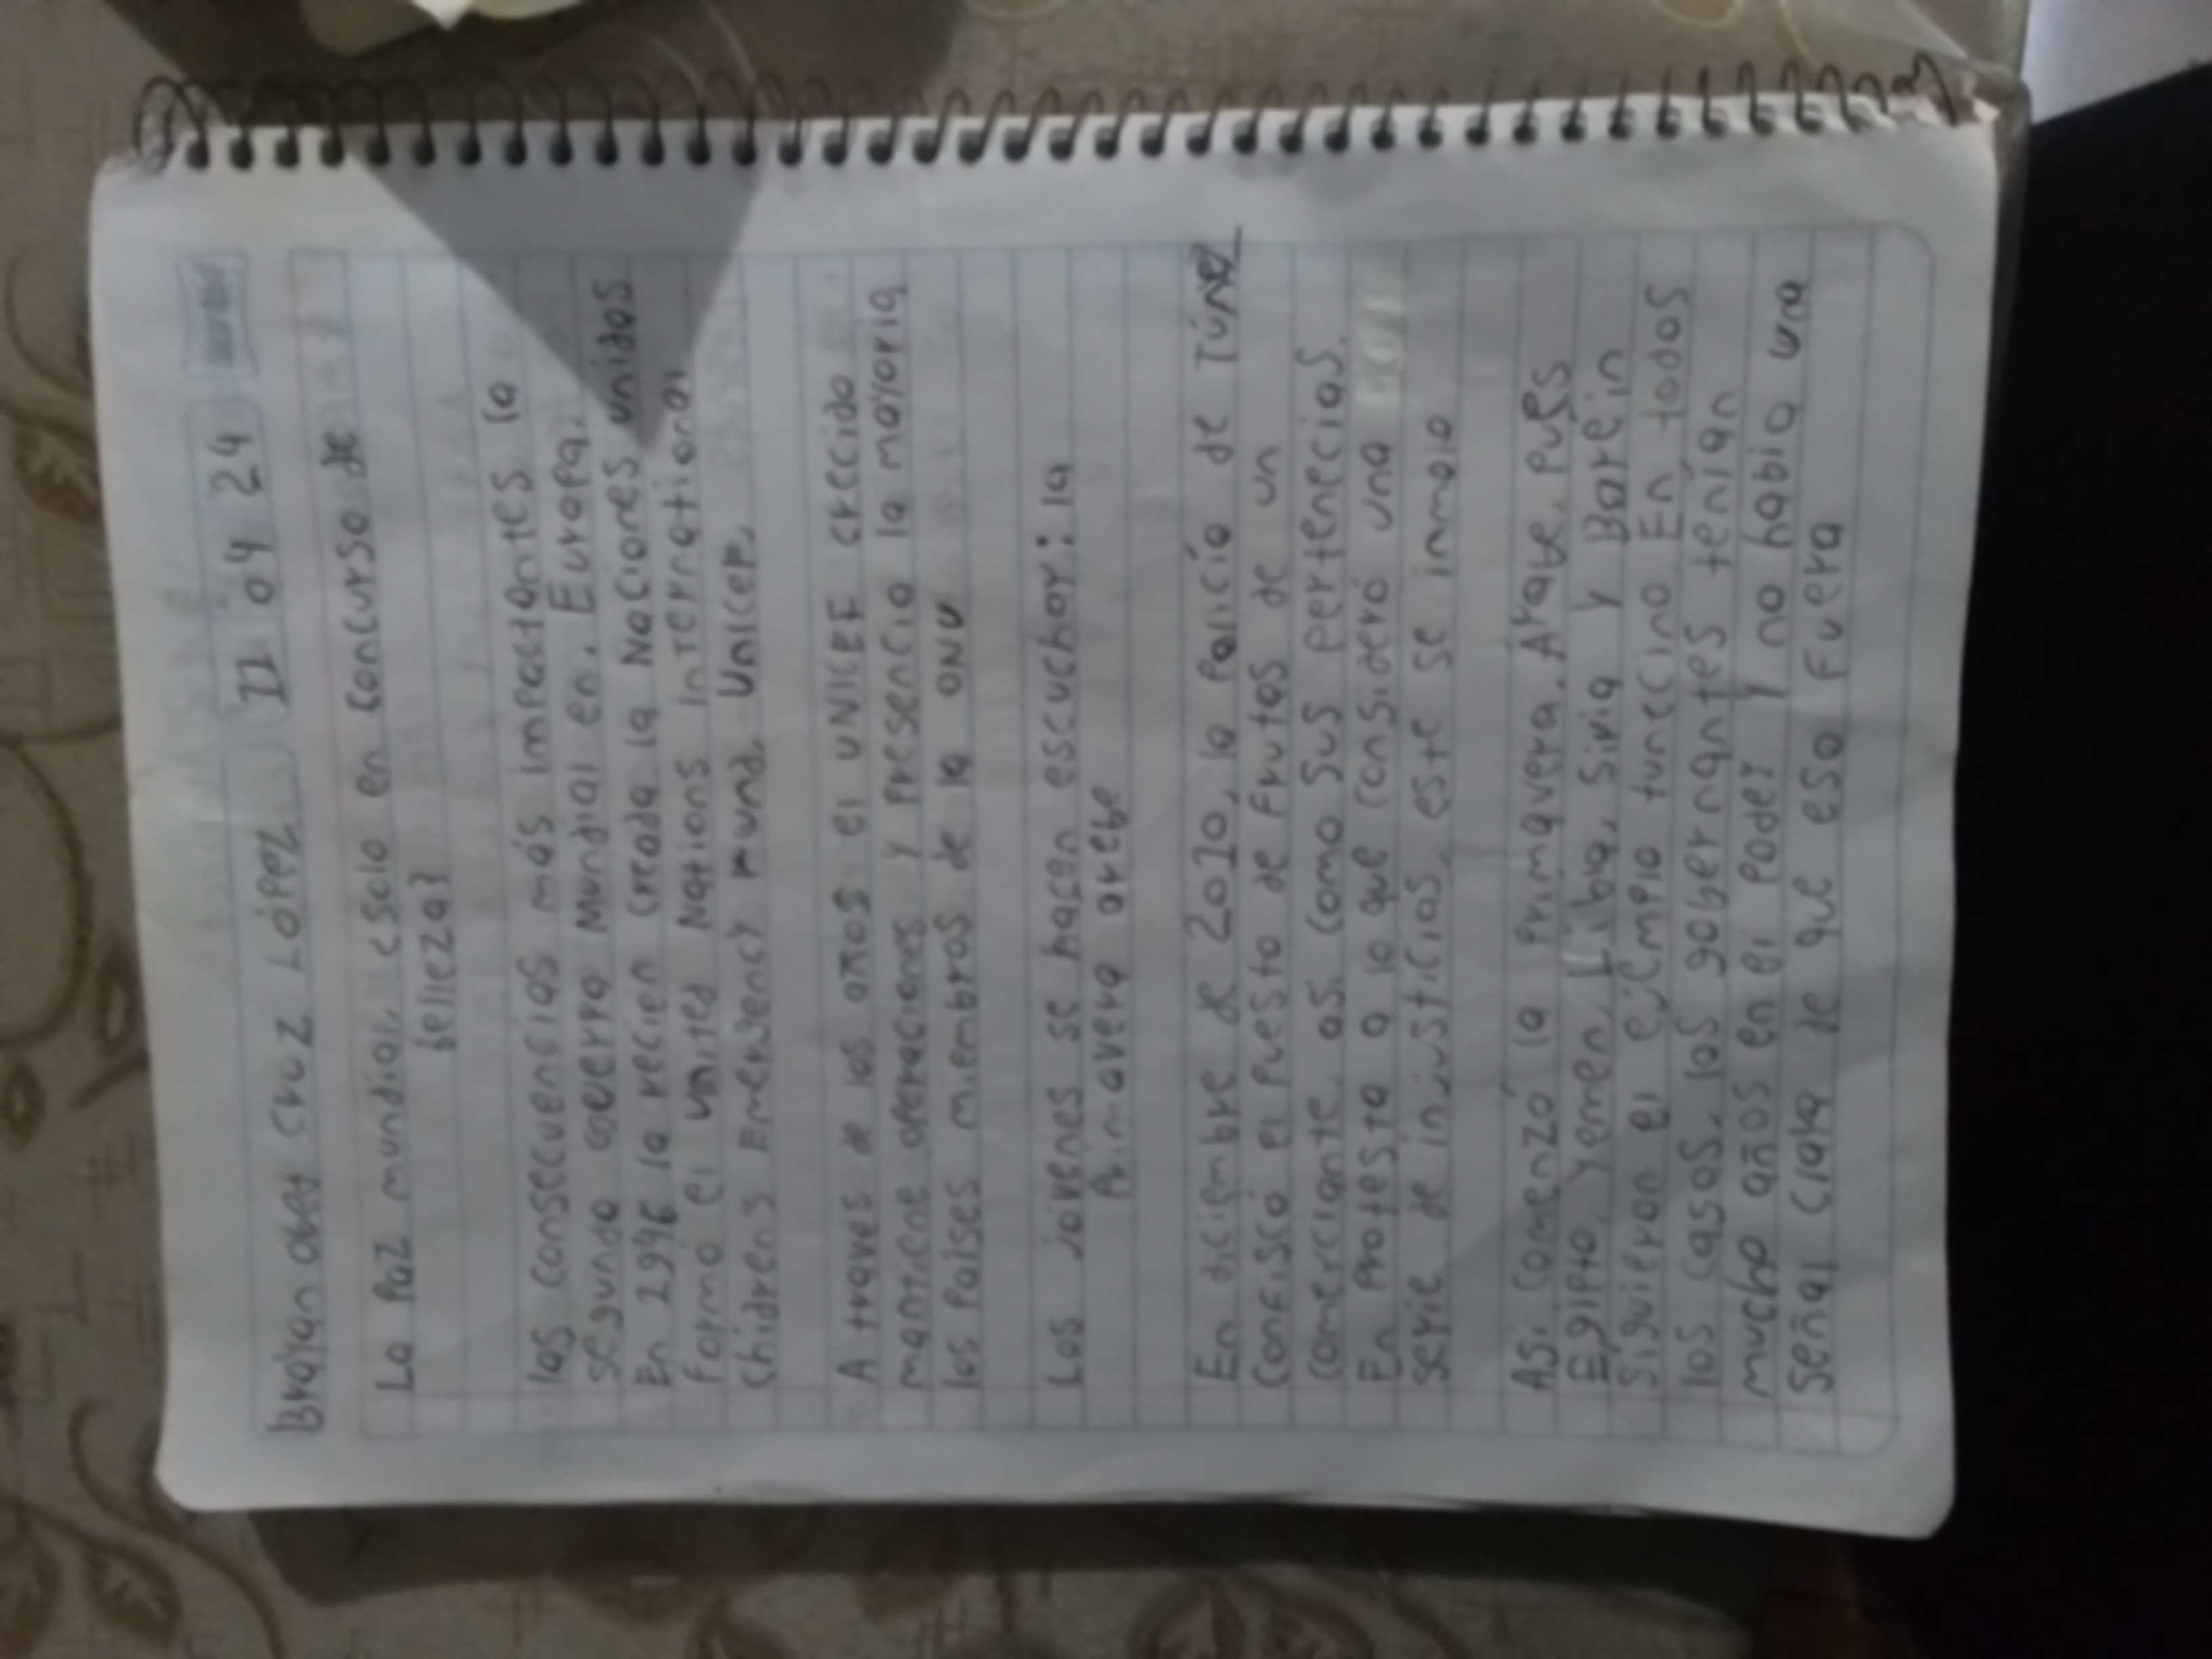 Brayan obet Cruz López 11 04 24
La Paz mundial, ¿solo en concurso de
belleza?
las consecuencias más impactantes la
segunda Guerra Mundial en, Europa,
En 1946 la recien creada la Naciones unidos
formó el United Nations International
Chidren's Emergency Fund, Unicef,
A traves de los años el UNICEF crecido
mantiene operaciones y Presencia la mayoria
los Países miembros de la ONU
Los jóvenes se hacen escuchar: la
Primavera arebe
En diciembre de 2010, la Policía de Túnez
Confiscó el Puesto de frutas de un
Comerciante, así como sus pertenecias.
En Protesta a lo que Consideró una
serie de injusticias, este se inmolo
Así Comenzó la Primavera. Árabe, pues
Egipto, Yemen, Libia, siria y Barein
Siguieron el ejemplo tunecino. En todos
los casos, los gobernantes tenían
mucho años en el Poder y no habia una
Señal Clara de que eso fuera